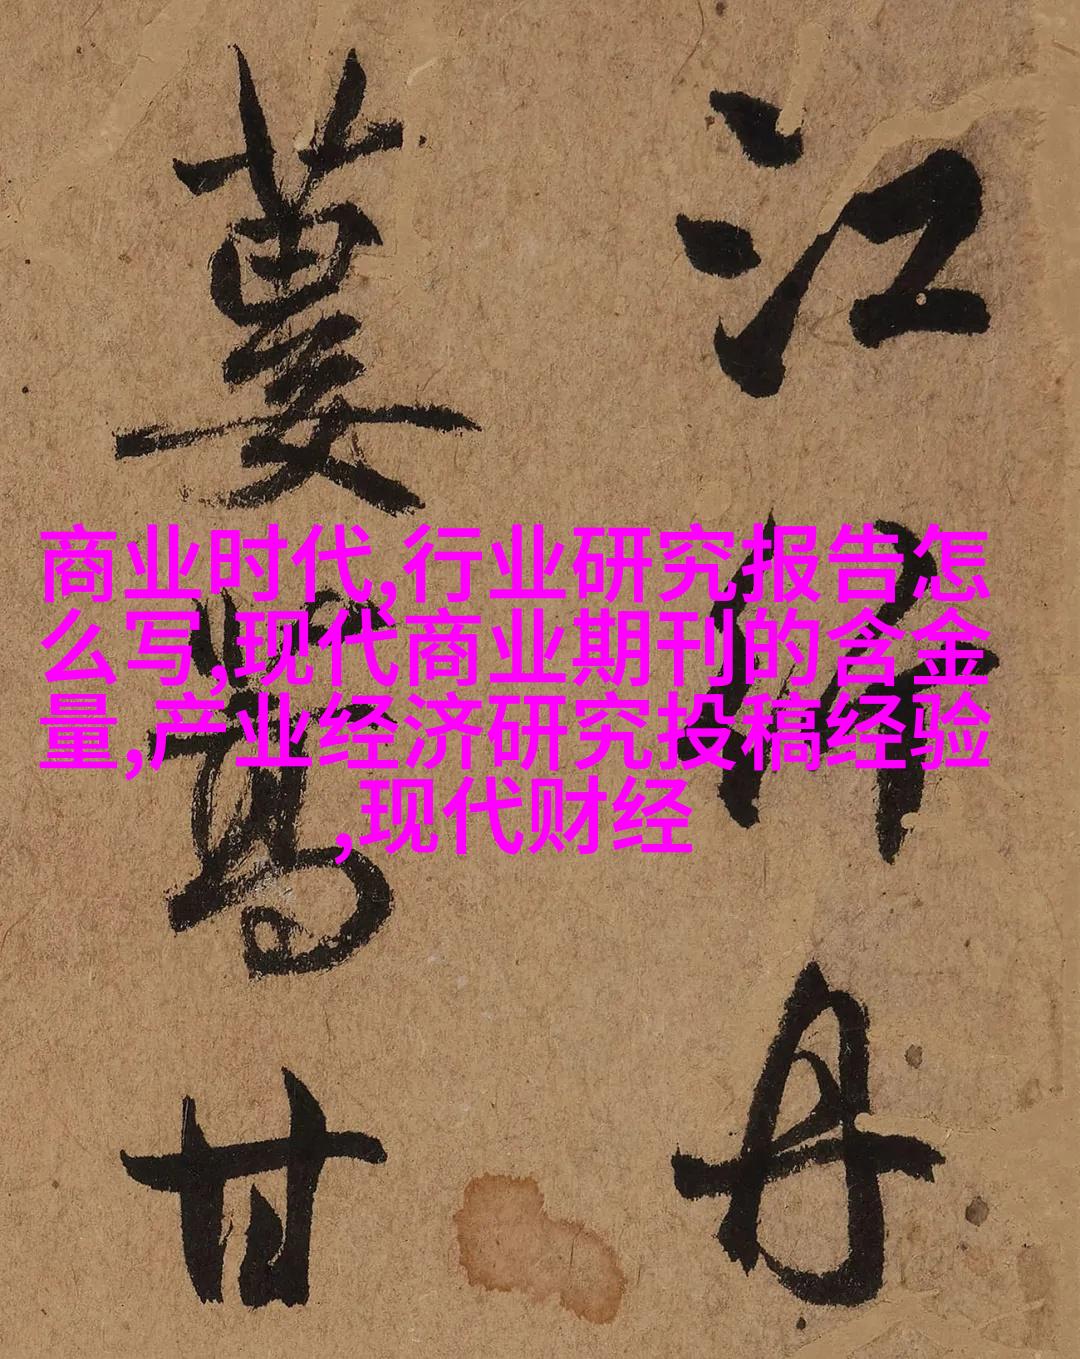 商业时代,行业研究报告怎
么写,现代商业期刊的含金
量,产业经济研究投稿经验
,现代财经
江
丹
甘